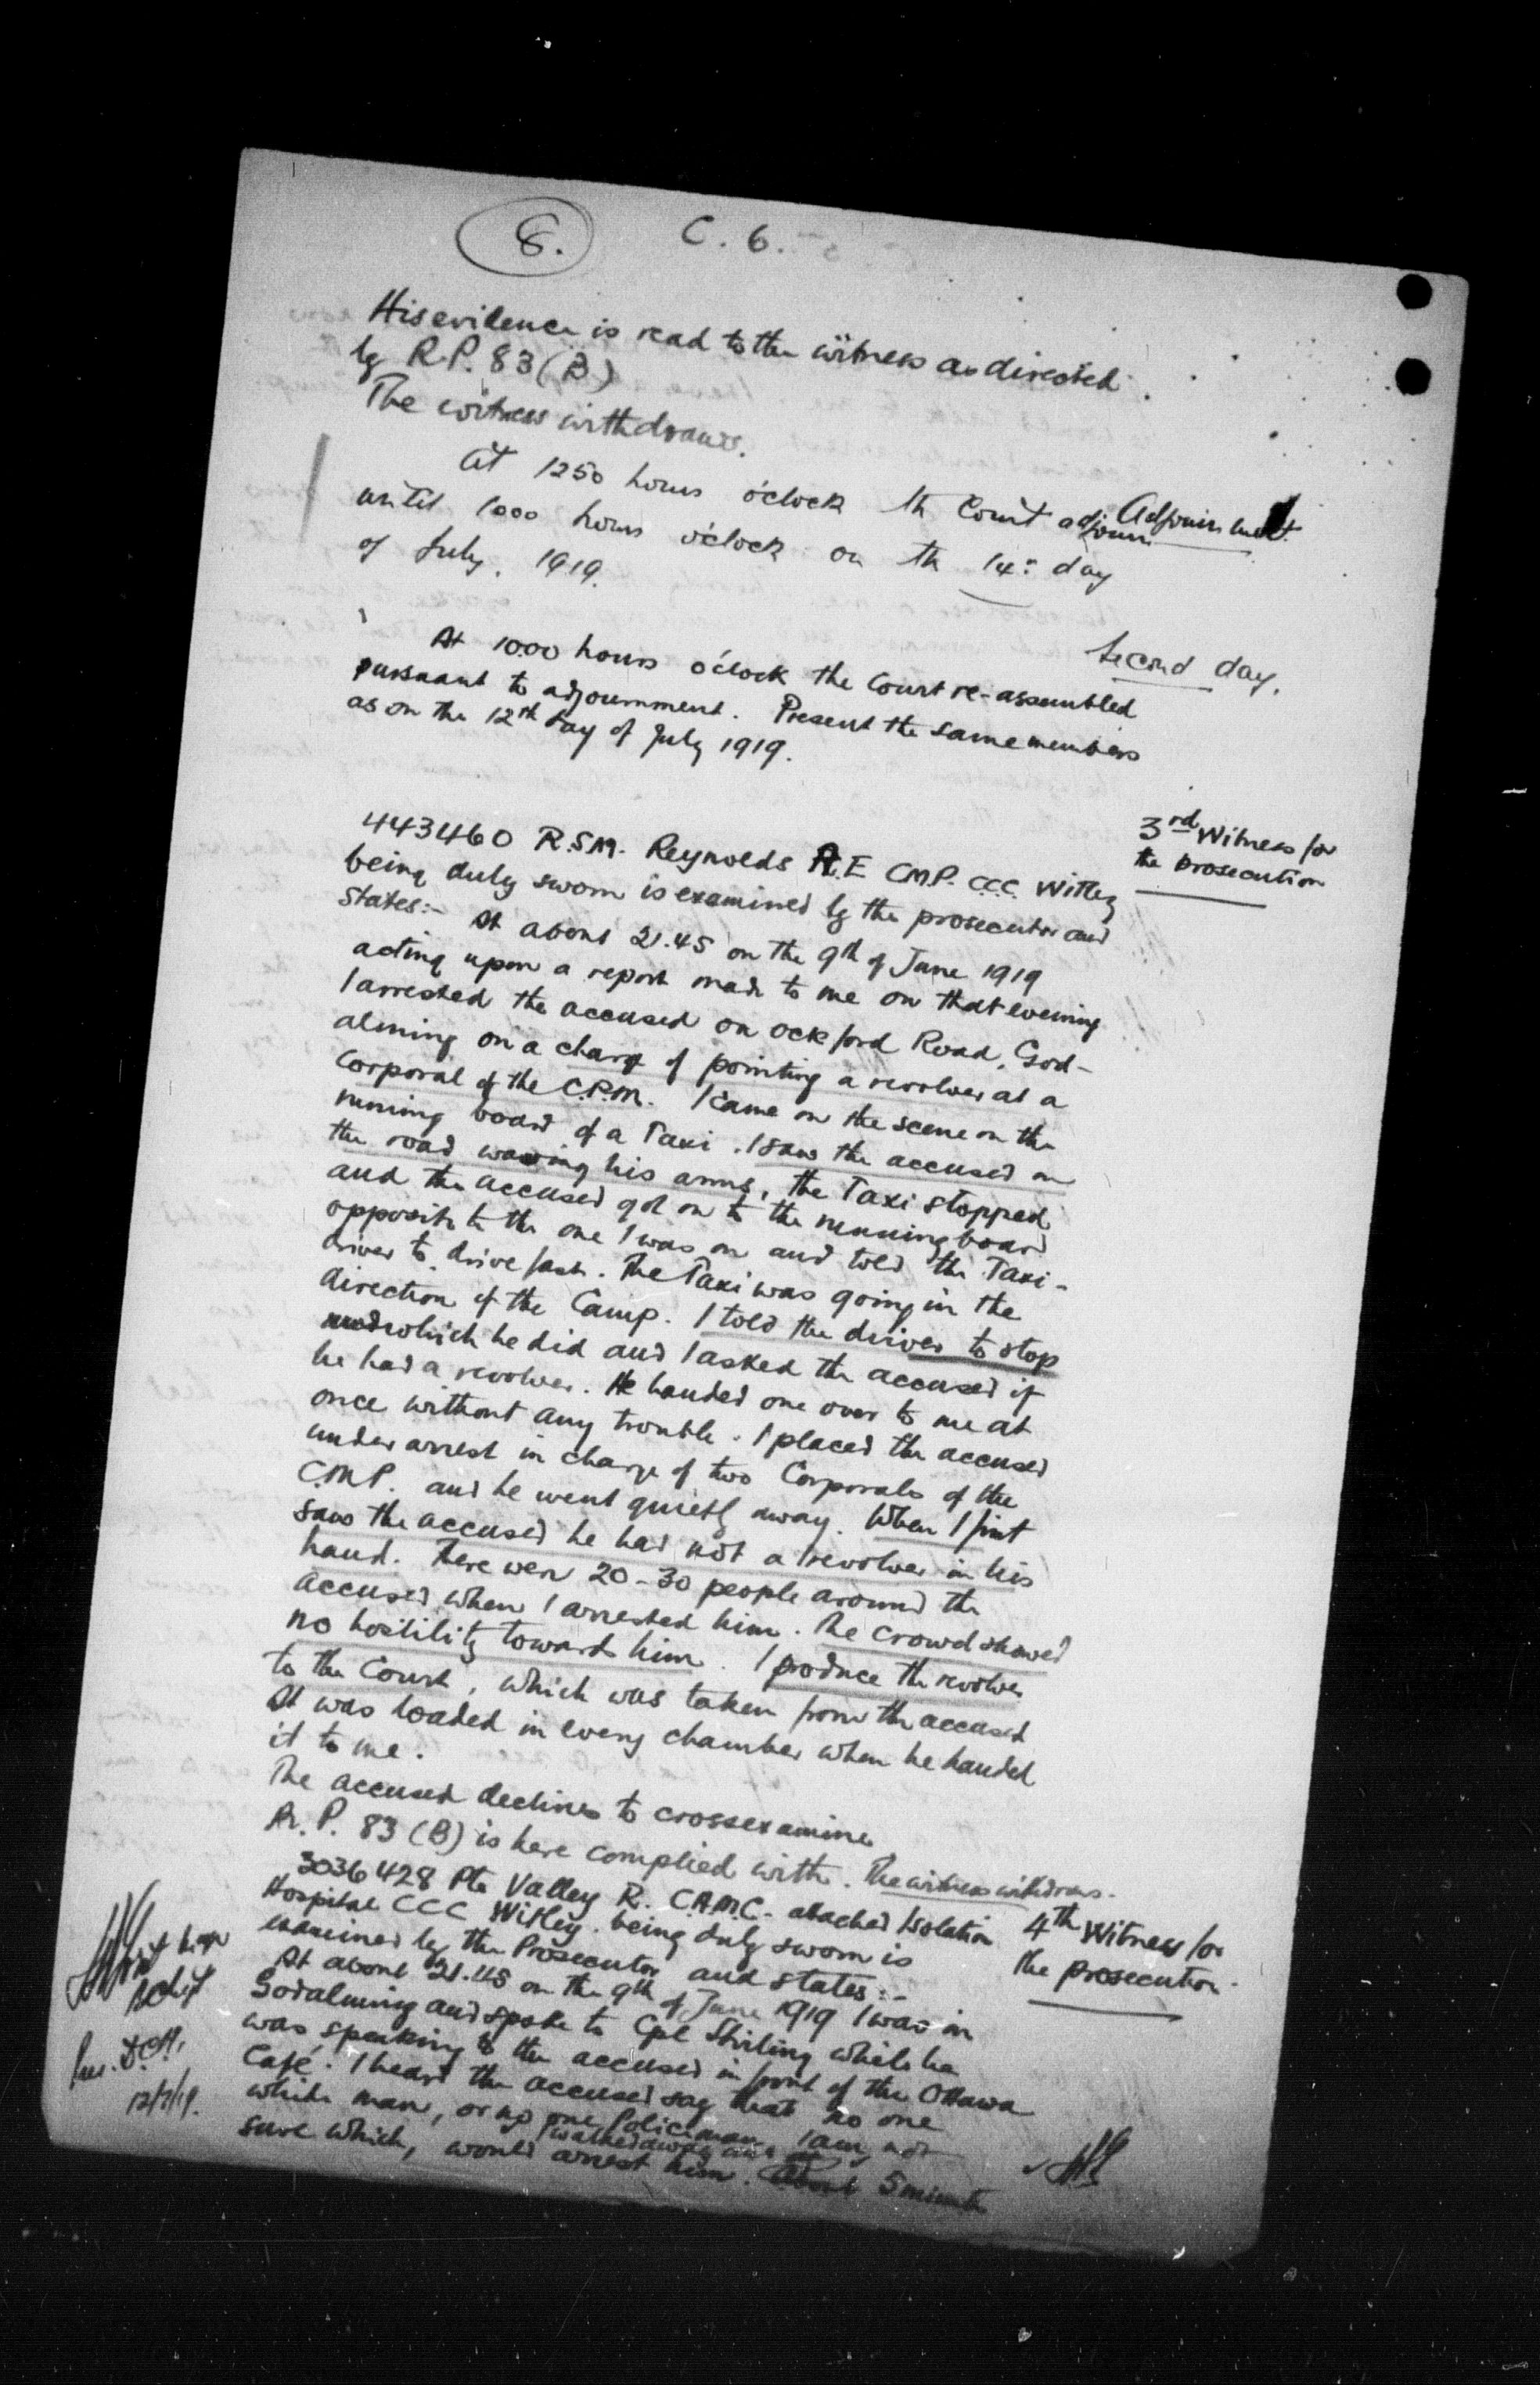 8. C. 6.
His evidence is read to the witness as directed
by R.P. 83 (B)
The witness withdraws.
At 1250 hours o'clock th Court adjourn
Adjournment.
until 1000 hours o'clock on th 14th day
of July. 1919.
Second day.
At 1000 hours o'clock the Court re-assembled
pursuant to adjournment. Present the same members
as on the 12th day of July 1919.
3rd Witness for
the prosecution
443460 R.S.M. Reynolds A.E C.M.P. C.C.C. Witley
being duly sworn is examined by the prosecutor and
States:- At about 21.45 on the 9th of June 1919
acting upon a report made to me on that evening
I arrested the accused on Ockford Road, God-
alming on a charge of pointing a revolver at a
Corporal of the C.P.M. I came on the scene on the
running board of a Taxi. I saw the accused on
the road waving his arms, the Taxi stopped
and the accused got on to the running board
opposite to the one I was on and told the Taxi-
driver to drive fast. The Taxi was going in the
direction of the Camp. I told the driver to stop
which he did and I asked the accused if
he had a revolver. He handed one over to me at
once without any trouble. I placed the accused
under arrest in charge of two Corporals of the
C.M.P. and he went quietly away. When I first
saw the accused he had not a revolver in his
hand. There were 20-30 people around the
accused when I arrested him. The crowd showed
no hostility towards him. I produce the revolver
to the Court, which was taken from the accused
It was loaded in every chamber when he handed
it to me.
The accused declines to crossexamine
R.P. 83 (B) is here complied with. The witness withdraws.
4th Witness for
the prosecution.
3036428 Pte Valley R. C.A.M.C. attached Isolation
Hospital CCC Witley. being duly sworn is
examined by the Prosecutor and states:-
At about 21.45 on the 9th of June 1919 I was in
Godalming and spoke to Cpl Stirling while he
was speaking to the accused in front of the Ottawa
Café. I heard the accused say that no one
white man, or no one Policeman I am not
sure which, would arrest him. I walked away and about 5 minutes
12/7/19.